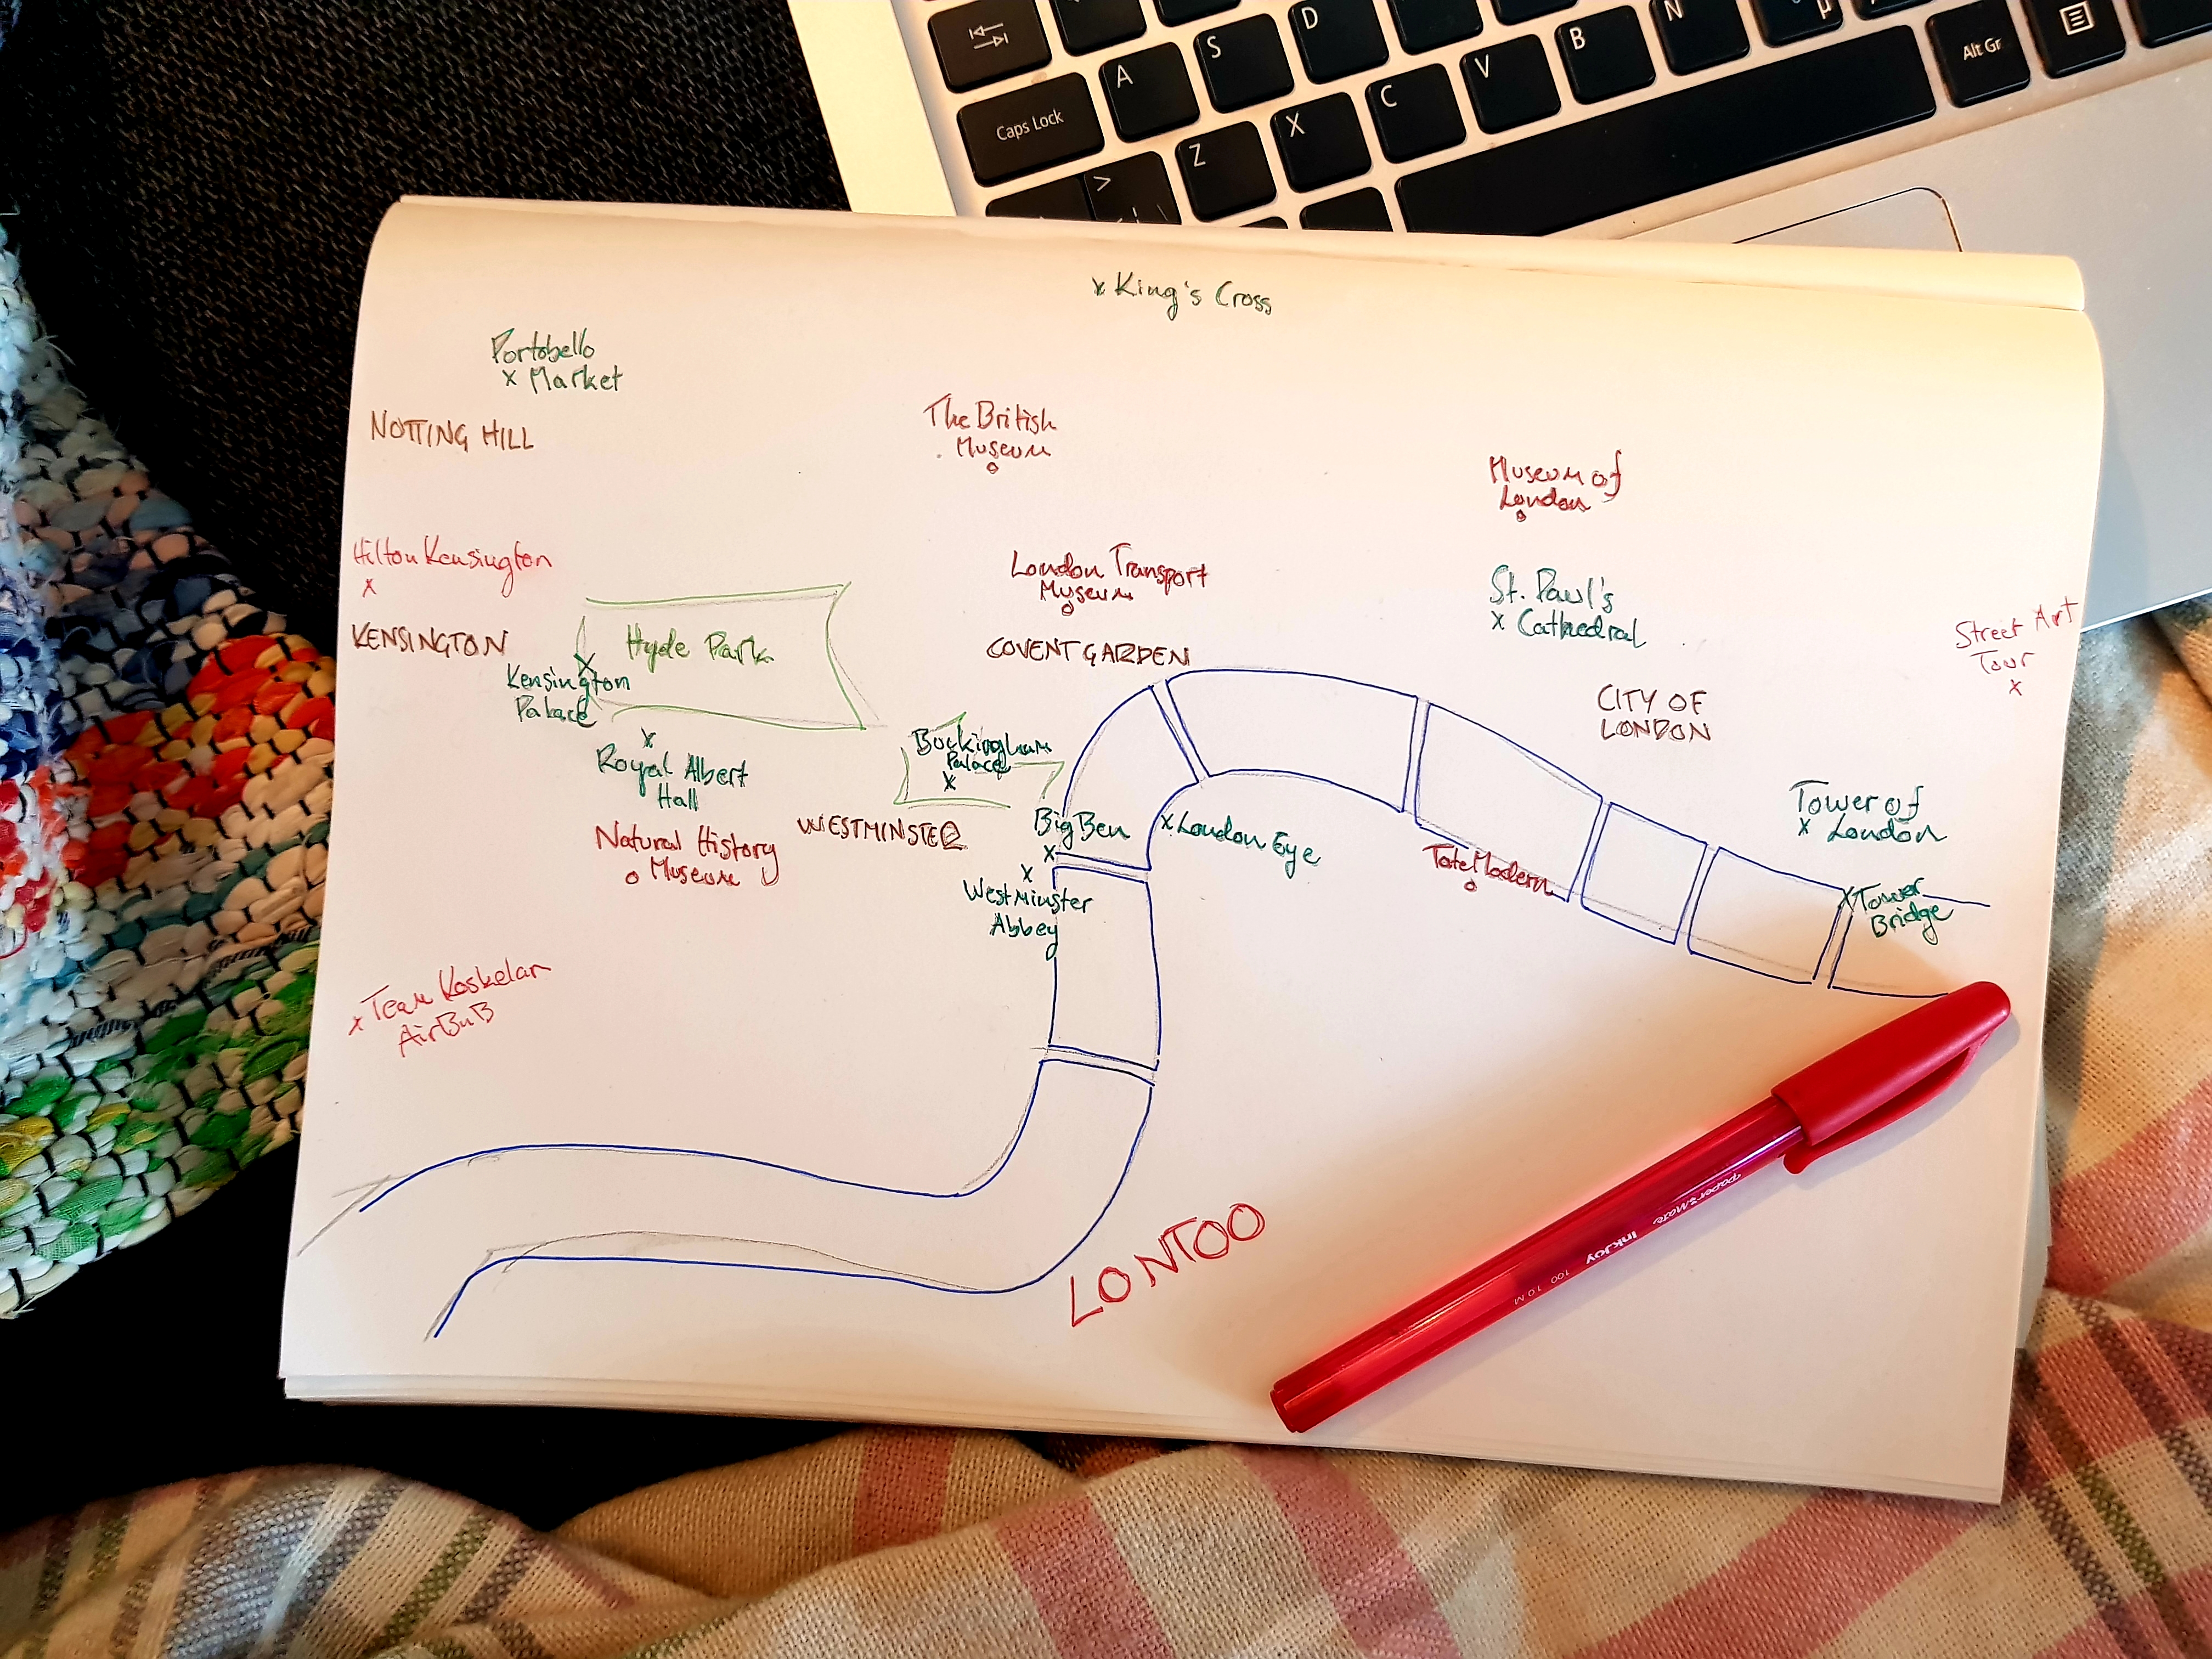 D
N
µ
S
B
Alt Gr
A
V
Caps Lock
C
X
Z
>
x King's Cross
Portobello
x Market
NOTTING HILL
The British
Museum
Museum of
London
Hilton Kensington
x
London Transport
Museum
St. Paul's
x Cathedral
Street Art
Tour
x
KENSINGTON
Hyde Park
COVENT GARDEN
x
Kensington
Palace
CITY OF
LONDON
x
Royal Albert
Hall
Buckingham
Palace
x
WESTMINSTER
Big Ben
x
x London Eye
Tower of
x London
Natural History
Museum
Tate Modern
x
Westminster
Abbey
x Tower
Bridge
x Team Koskelan
AirBnB
LONTOO
paper:mate
InkJoy
100 1.0 M